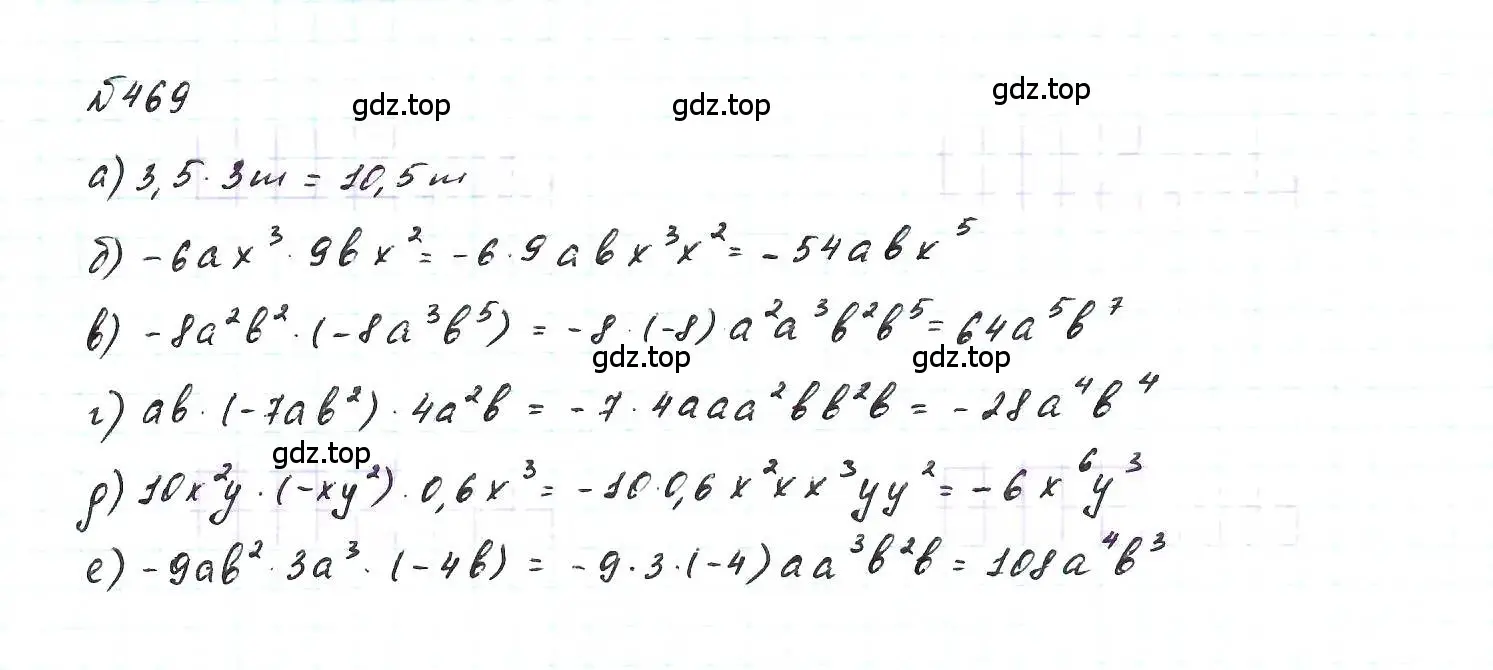 №469
gdz.top gdz.top gdz.top
а) 3,5·3m = 10,5m
б) -6ax³·9bx² = -6·9abx³x² = -54abx⁵
в) -8a²b²·(-8a³b⁵) = -8·(-8)·a²a³b²b⁵ = 64a⁵b⁷
gdz.top gdz.top
г) ab·(-7ab²)·4a²b = -7·4aaa²bb²b = -28a⁴b⁴
gdz.top
д) 10x²y·(-xy²)·0,6x³ = -10·0,6x²xx³yy² = -6x⁶y³
е) -9ab²·3a³·(-4b) = -9·3·(-4)aa³b²b = 108a⁴b³